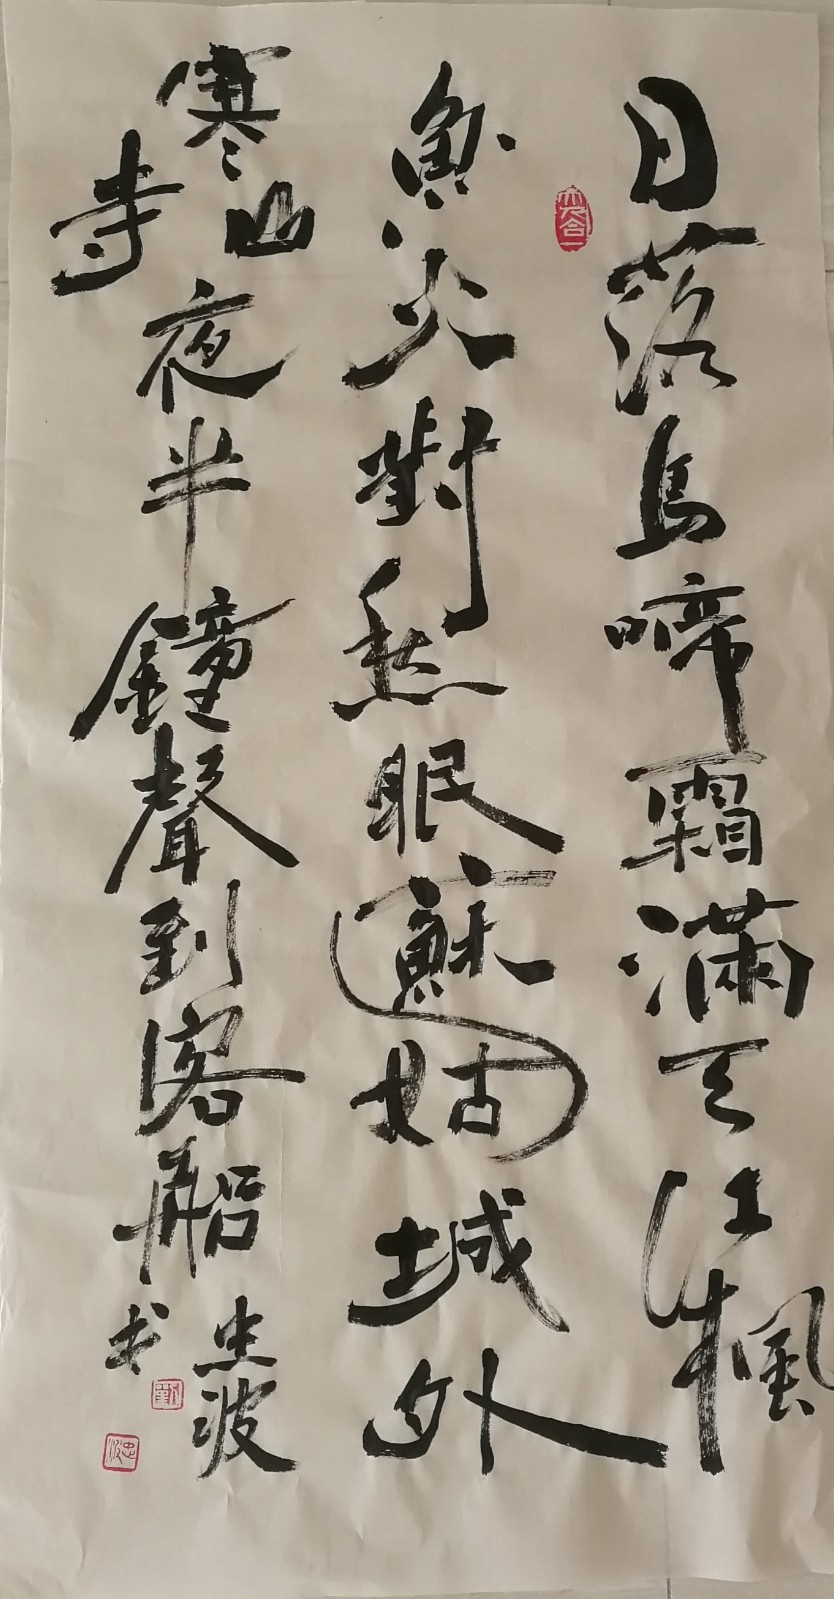 月落烏啼霜滿天江楓
魚火對愁眠蘇姑城外
寒山寺夜半鐘聲到客船
忠波
书